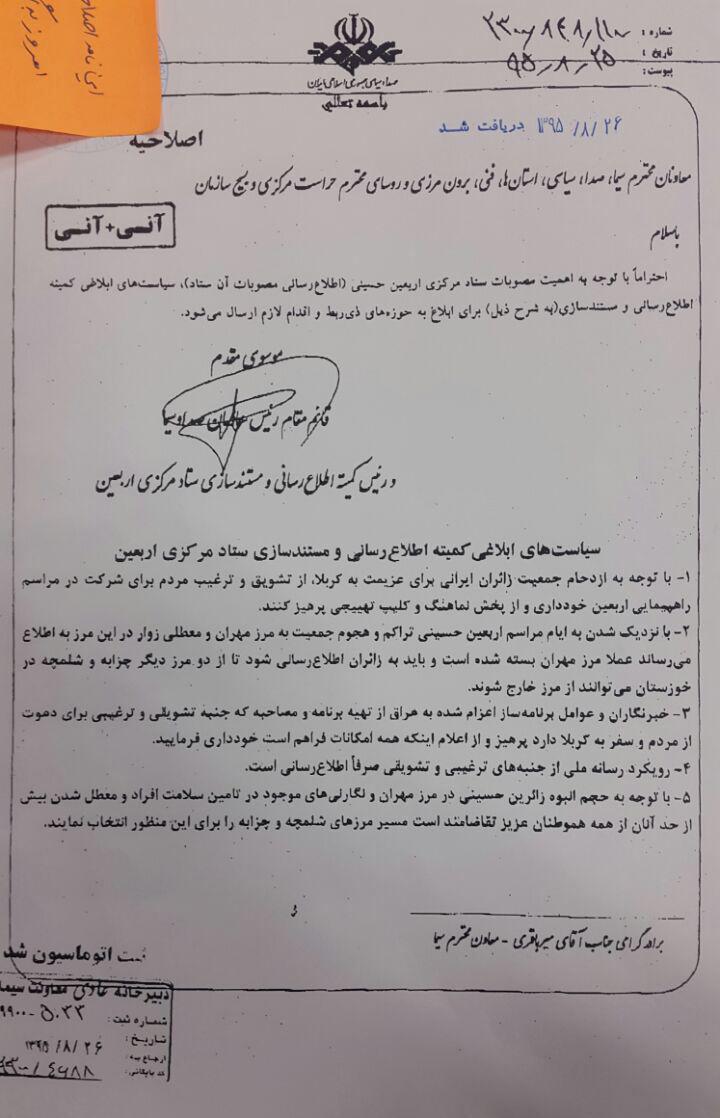 این نامه اصلاح
امروز به
شماره : ۲۳۰۰/۸۴۸/۱۱۰
تاریخ : ۹۵/۸/۲۵
پیوست:
صدا و سیمای جمهوری اسلامی ایران
باسمه تعالی
۱۳۹۵/۸/۲۶ دریافت شد
اصلاحیه
معاونان محترم سیما، صدا، سیاسی، استان‌ها، فنی، برون مرزی و روسای محترم حراست مرکزی و بسیج سازمان
آنـی+آنـی
باسلام
احتراماً با توجه به اهمیت مصوبات ستاد مرکزی اربعین حسینی (اطلاع‌رسانی مصوبات آن ستاد)، سیاست‌های ابلاغی کمیته
اطلاع‌رسانی و مستندسازی(به شرح ذیل) برای ابلاغ به حوزه‌های ذی‌ربط و اقدام لازم ارسال می‌شود.
موسوی مقدم
قائم مقام رئیس سازمان صداوسیما
و رئیس کمیته اطلاع‌رسانی و مستندسازی ستاد مرکزی اربعین
سیاست‌های ابلاغی کمیته اطلاع‌رسانی و مستندسازی ستاد مرکزی اربعین
۱- با توجه به ازدحام جمعیت زائران ایرانی برای عزیمت به کربلا، از تشویق و ترغیب مردم برای شرکت در مراسم
راهپیمایی اربعین خودداری و از پخش نماهنگ و کلیپ تهییجی پرهیز کنند.
۲- با نزدیک شدن به ایام مراسم اربعین حسینی تراکم و هجوم جمعیت به مرز مهران و معطلی زوار در این مرز به اطلاع
می‌رساند عملا مرز مهران بسته شده است و باید به زائران اطلاع‌رسانی شود تا از دو مرز دیگر چزابه و شلمچه در
خوزستان می‌توانند از مرز خارج شوند.
۳- خبرنگاران و عوامل برنامه‌ساز اعزام شده به عراق از تهیه برنامه و مصاحبه که جنبه تشویقی و ترغیبی برای دعوت
از مردم و سفر به کربلا دارد پرهیز و از اعلام اینکه همه امکانات فراهم است خودداری فرمایید.
۴- رویکرد رسانه ملی از جنبه‌های ترغیبی و تشویقی صرفاً اطلاع‌رسانی است.
۵- با توجه به حجم انبوه زائرین حسینی در مرز مهران و نگارنی‌های موجود در تامین سلامت افراد و معطل شدن بیش
از حد آنان از همه هموطنان عزیز تقاضامند است مسیر مرزهای شلمچه و چزابه را برای این منظور انتخاب نمایند.
برادر گرامی جناب آقای میرباقری - معاون محترم سیما
ثبت اتوماسیون شد
دبیرخانه عادی معاونت سیما
شماره ثبت: ۹۹۰۰-۵۰۳۳
تاریخ: ۱۳۹۵/۸/۲۶
ارجاع به:
کد بایگانی: